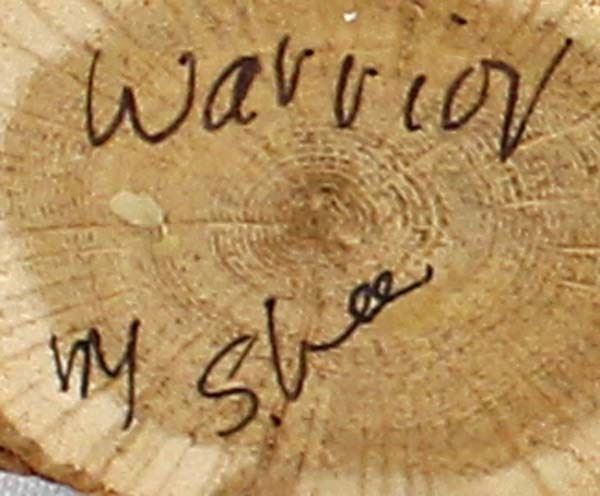 Warrior
by Shee